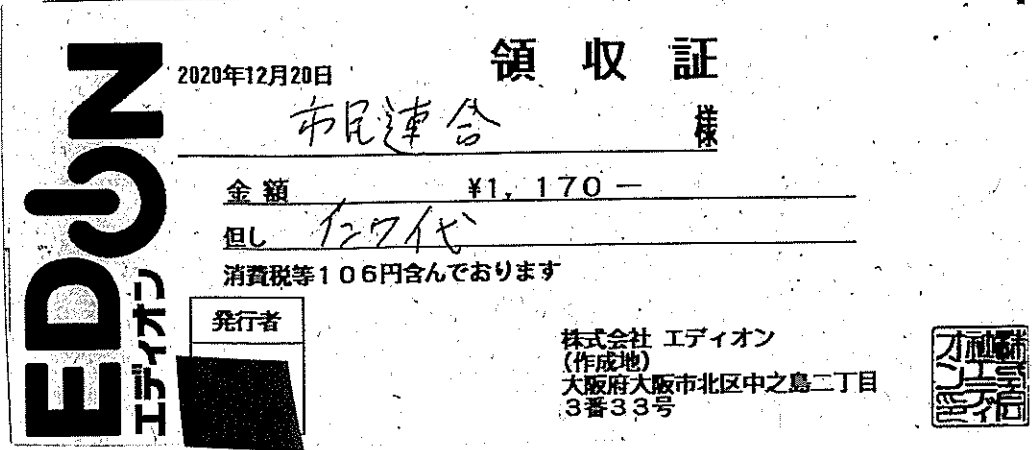 EDION
エディオン
2020年12月20日
領収証
市民連合 様
金額 ¥1,170－
但し インク代
消費税等106円含んでおります
発行者
株式会社 エディオン
(作成地)
大阪府大阪市北区中之島二丁目
3番33号